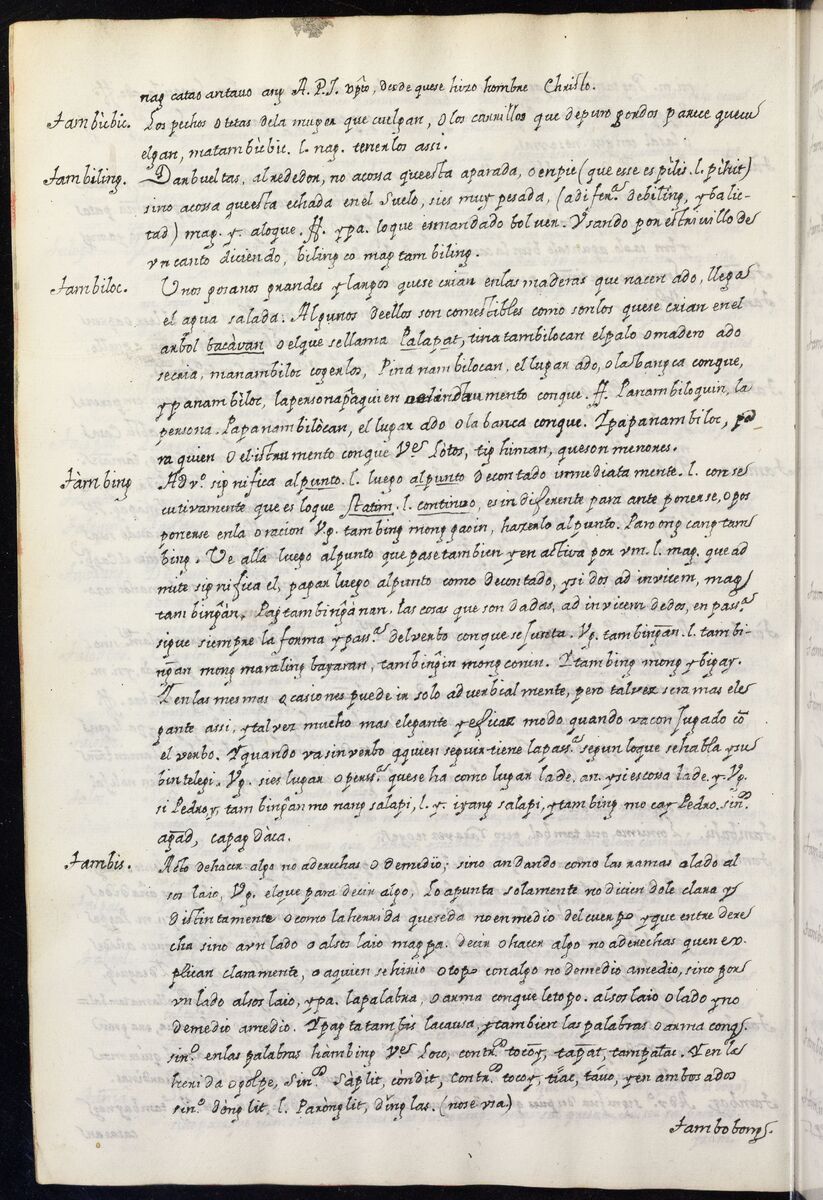 nag catao antauo ang A.P.J. xpto, desde que se hizo hombre Christo.
tambùbic. Los pechos o tetas dela muger que cuelgan, o los carrillos que de puro gordos parece que cu
elgan, matambùbic. l. nag. tenerlos assi.
tambiling. Dar bueltas, al rededor, no a cosa que esta aparada, o en pie (que esse es pìlis. l. pìhit)
sino a cosa que esta echada en el suelo, si es muy pesada, (a difera. de bilìng, y balic-
tad) mag. y. aloque. ff. ypa. lo que es mandado bolver. Usando por estrivillo de
vn canto diciendo, biling co mag tambiling.
tambiloc. Unos gosanos grandes y largos que se crian en las maderas que nacen ado, llega
el agua salada. Algunos de ellos son comestibles como son los que se crian en el
arbol bacàvan o el que se llama Palapat, tina tambilocan el palo o madero ado
se cria, manambiloc cogerlos, Pina nambilocan, el lugar ado, o la bangca conque,
y panambiloc, la persona pa. quien o el instrumento conque. ff. Panambiloquin, la
persona. Papanambilòcan, el lugar ado o la banca conque. Ypapanambiloc, pa
ra quien o el istrumento conque Ve. Lòtos, tig himan, que son menores.
tàmbing Advo. significa al punto. l. luego al punto de contado immediatamente. l. conse
cutivamente que es lo que statim. l. continuo, es indiferente para ante ponerse, o pos
ponerse en la oracion Vg. tambing mong gaoin, hazerlo al punto. Paroong cang tam
bing. Ve alla luego al punto que pase tambien y en activa por vm. l. mag. que ad
mite significa el, pagar luego al punto como de contado, y si dos ad invicem, mag
tam bingàn. Pagtambingànan. las cosas que son dadas, ad invicem de dos, en passa.
sigue siempre la forma y passa. del verbo con que se Junta. Vg. tambingan. l. tambi-
ngan mong maraling bayaran, tambingin mong conin. Ytambing mong ybigay.
Y en las mesmas ocasiones puede ir solo adverbialmente, pero tal vez sera mas ele
gante assi, y tal vez mucho mas elegante y eficaz modo quando va con Jugado cõ
el verbo. Y quando va sin verbo a quien seguir tiene la passa. segun lo que se habla y su
bintelegi. Vg. si es lugar o perssa. que se ha como lugar la de, an. y si es cossa la de. y. Vg.
si Pedroy, tam bingan mo nang salapi, l. y. iyang salapi, ytambing mo cay Pedro. sino.
agad, capagdàca.
tambis. Acto de hacer algo no aderechas o de medio; sino andando como las ramas a lado al
sos laio, Vg. el que para decir algo, lo apunta solamente no diciendole clara y
distintamente o como la herida que se da no en medio del cuerpo y que entre dere
cha sino a vn lado o al sos laio magpa. decir o hacer algo no aderechas quen ex
plican claramente, o a quien se hirio o topo con algo no de medio a medio, sino por
vn lado al sos laio, ypa. la palabra, o arma con que le topo. al sos laio o lado y no
de medio a medio. Ypagtatambis la causa, y tambien las palabras o arma conq.
sino. en las palabras hàmbing Ve. Loco, contro. tocoy, tapat, tampatac. Y en la
herida o golpe, sino. Sàplit, còndit, contro. tocoy, tiac, tàuo, y en ambos ados
sino. dònglit, l. Parònglit, dìnglas. (no se vsa.)
tambobong.